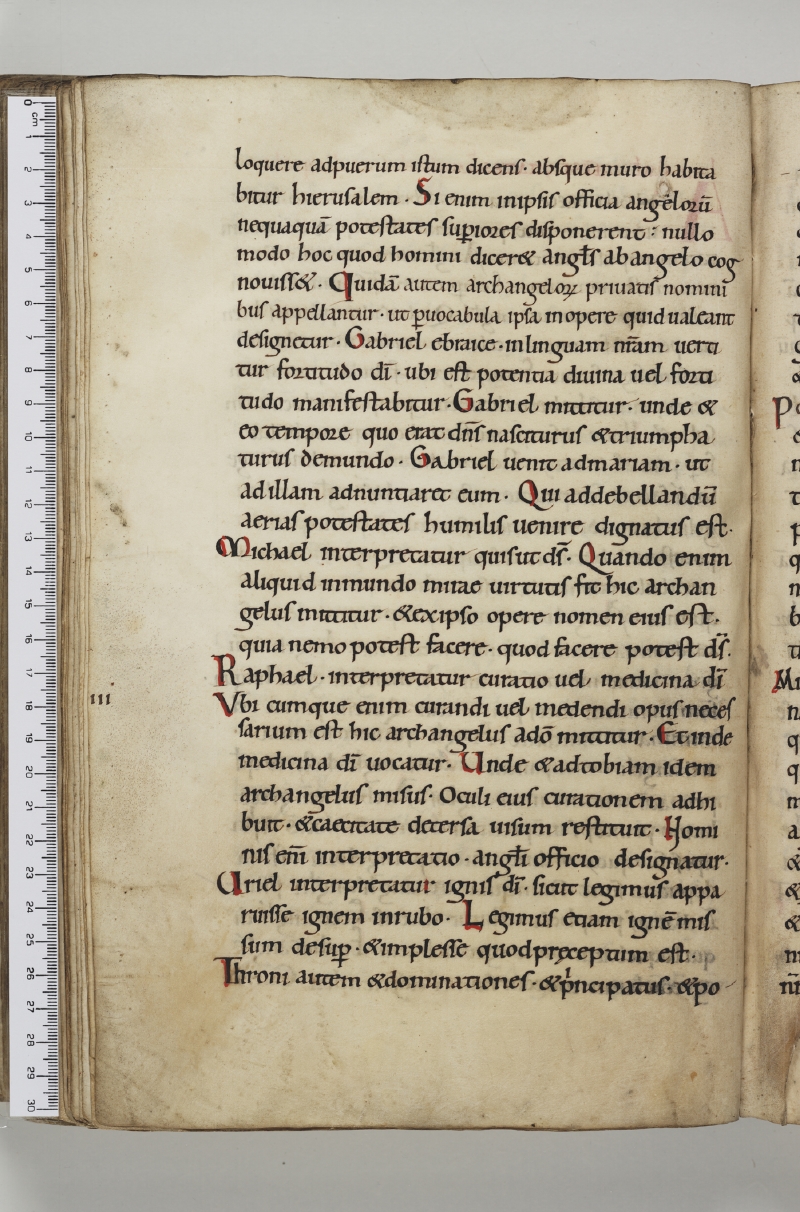 loquere adpuerum istum dicens· absque muro habita
bitur hierusalem · Si enim inipsis officia angeloꝝū
nequaquā potestates suꝑiores disponerent : nullo
modo hoc quod homini dicer& angl̄s abangelo cog
nouiss&· Quidā autem archangeloꝝ priuatis nomini
bus appellantur· ut ꝑuocabula ipsa inopere quid ualeant
designetur · Gabriel ebraice· inlinguam nr̄am uerti
tur fortitudo dī · ubi est potentia diuina uel forti
tudo manifestabitur· Gabriel mittitur· unde &
eo tempore quo erat dn̄s nasciturus &triumpha
turus demundo · Gabriel uenit admariam · ut
adillam adnuntiaret eum · Qui addebellandū
aerias potestates humilis uenire dignatus est·
Michael interpretatur quisutds̄· Quando enim
aliquid inmundo mirae uirtutis fit hic archan
gelus mittitur· &exipso opere nomen eius est·
quia nemo potest facere· quod facere potest ds̄·
Raphael· interpretatur curatio uel medicina dī
Vbi cumque enim curandi uel medendi opus neces
III
sarium est hic archangelus adō mittitur· Et inde
medicina dī uocatur· Unde &adtobiam idem
archangelus misus· Oculi eius curationem adhi
buit· &caecitate detersa uisum restituit· Homi
nis eni̅ interpretatio· angl̄i officio designatur·
Uriel interpretatur ignis dī· sicut legimus appa
ruisse ignem inrubo· Legimus etiam ignē mis
sum desuꝑ· &implesse quodpręceptum est·
Throni autem &dominationes· &pⁱncipatus· &po